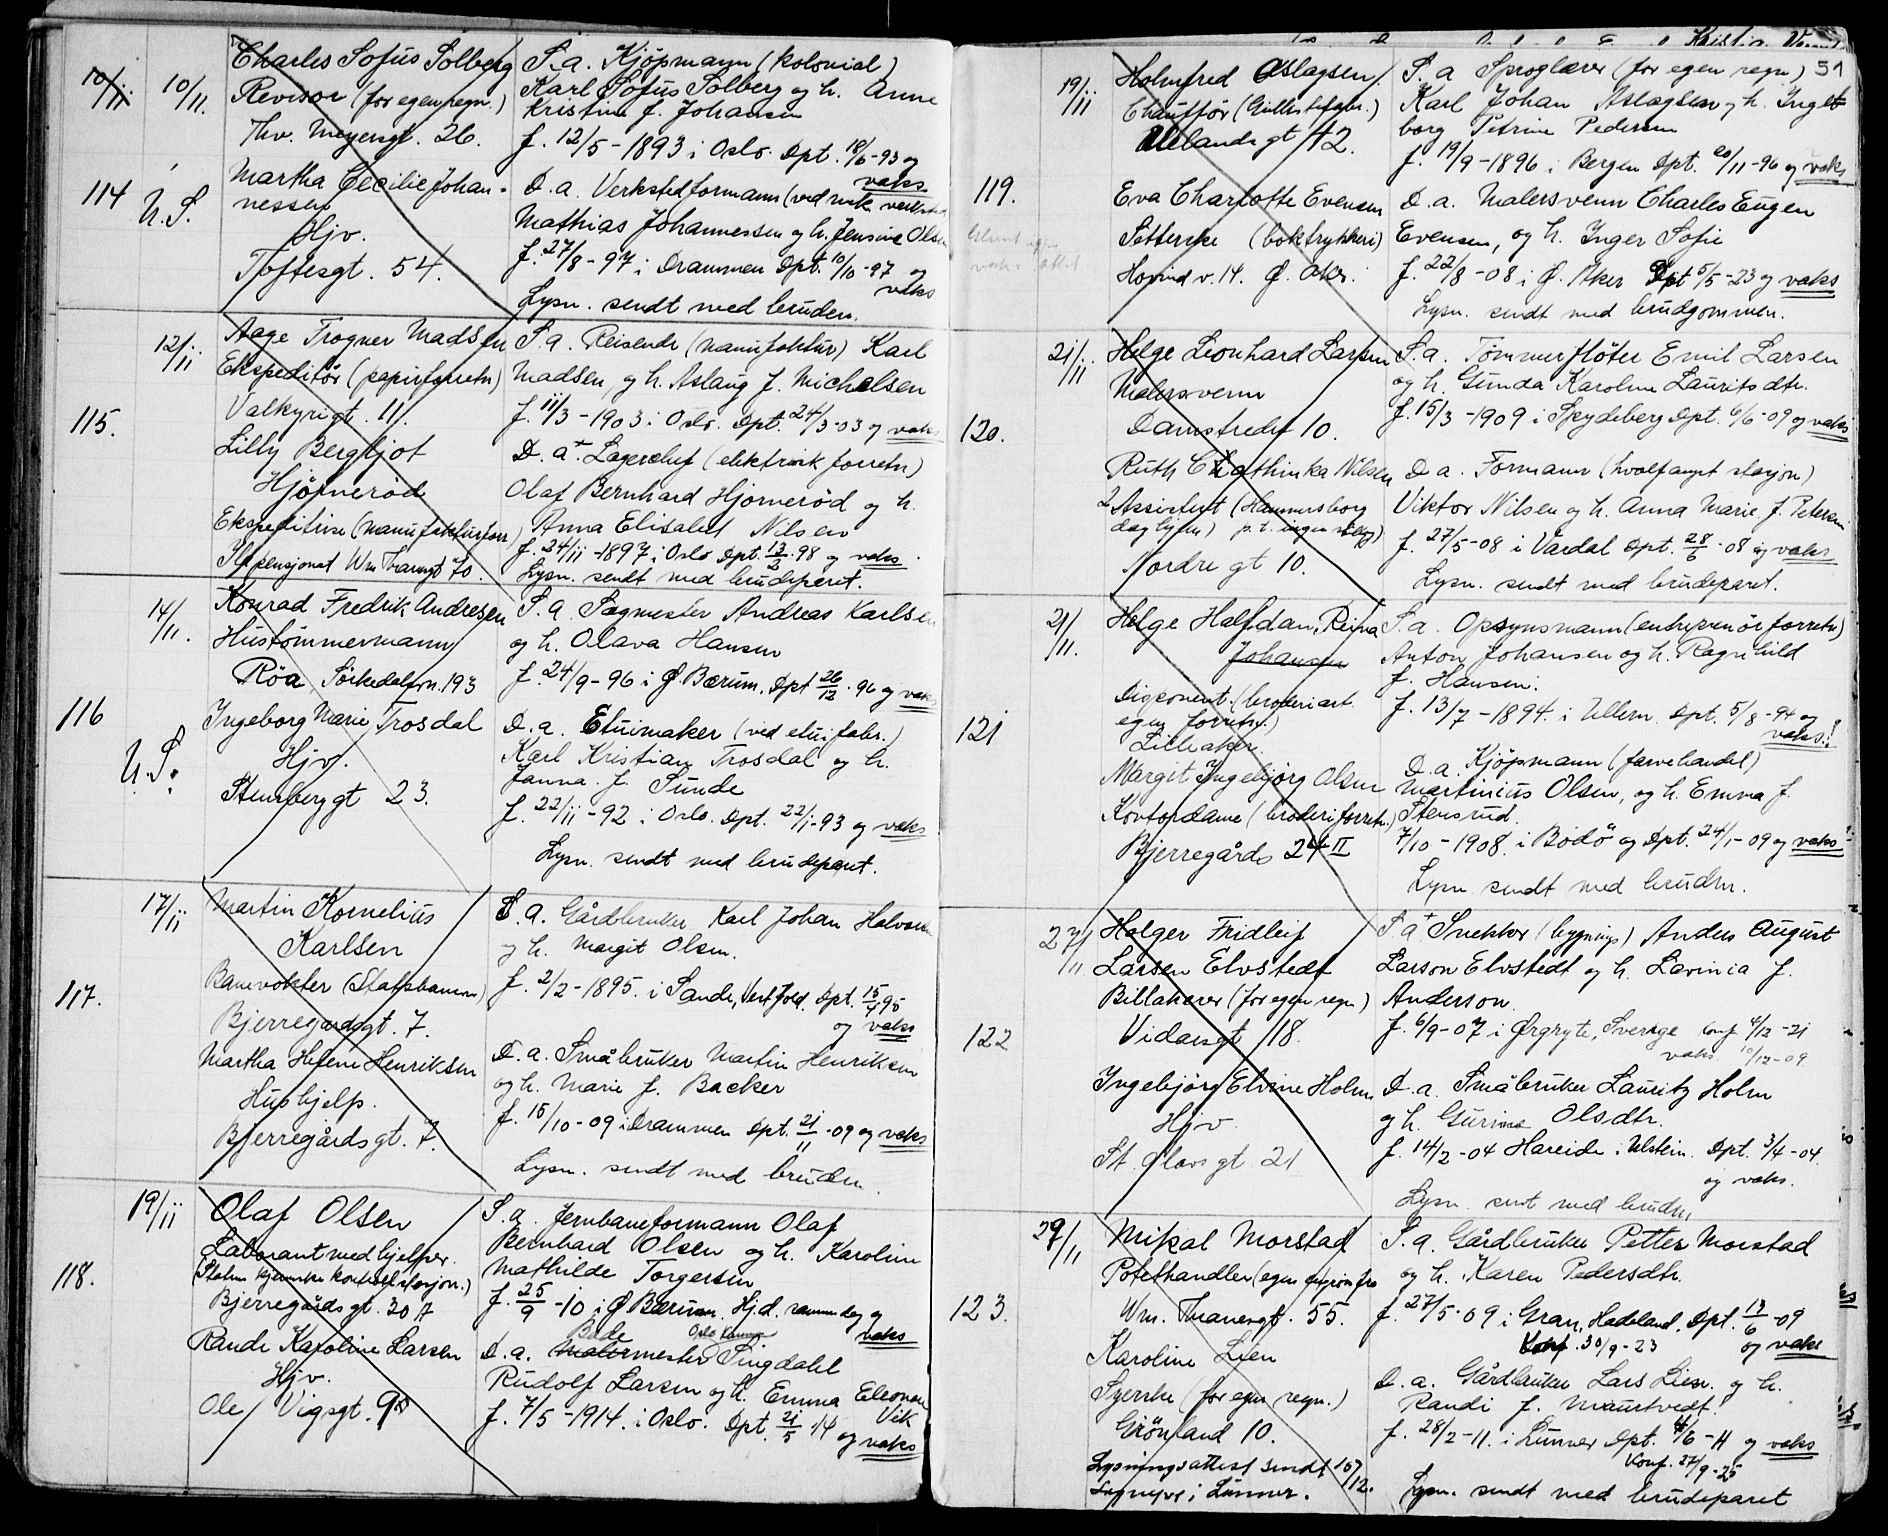 10/11 10/11. Charles Sofus Solberg S.a. Kjöpmann (kolonial)
Revisor (for egen regn.) Karl Sofus Solberg og h. Anne
Kristine f. Johansen
Thv. Meyersgt. 26. f. 12/5 - 1893 i Oslo. Dpt. 18/6-93 og
vaks
114 U.S. Martha Cecilie Johan- D.a. Verkstedformann (ved mek. verksted
nessen Mathias Johannessen og h. Jensine Olsen
Hjv. f. 27/8 - 97 i Drammen Dpt. 10/10 -97 og
vaks
Toftesgt. 54. Lysn. sendt med bruden.
12/11 Aage Trogner Madsen S.a. Reisende (manufaktur) Karl
Ekspeditör (papirforretn) Madsen, og h. Aslaug f. Michelsen
115. Valkyrigt. 11. f. 11/3 - 1903 i Oslo. Dpt. 24/3-03 og vaks
Lilly Bergljot D.a. Lagerchef (elektrisk forretn)
Hjörnerød Olaf Bernhard Hjörnerød og h.
Ekspeditrise (manufakturforr) Anna Elisabet Nilsen
f. 24/11 -1897 i Oslo Dpt. 13/3 -98 og vaks.
pensjonat Wm Thranesgt 70. Lysn. sendt med brudeparet.
14/11. Konrad Fredrik Andresen S.a. Sagmester Andreas Karlsen
Hustömmermann og h. Olava Hansen
Röa Sörkedalsvn. 193 f. 24/9 - 96 i Ø. Bærum. Dpt 26/12 -96 og vaks
116 U.S. Ingeborg Marie Trosdal D.a. Etuimaker (ved etui fabr.)
Hjv. Karl Kristian Trosdal og h.
Janna f. Sunde
Stensberggt 23. f. 22/11 - 92 i Oslo. Dpt. 22/1-93 og vaks
Lysn. sendt med brudeparet.
17/11 Martin Kornelius S.a. Gårdbruker Karl Johan Halvorsen
Karlsen og h. Margit Olsen.
117. Banevokter (Statsbanen) f. 2/2 - 1895. i Sande, Vestfold. Dpt. 15/4 95
Bjerregårdsgt. 7. og vaks
Martha Helene Henriksen D.a. Småbruker Martin Henriksen
Hushjelp. og h. Marie f. Backer
Bjerregårdsgt. 7. f. 15/10 - 09 i Drammen Dpt. 21/11 -09 og vaks
Lysn. sendt med bruden.
19/11 Olaf Olsen S.a. Jernbaneformann Olaf
Laborant med hjelper. Bernhard Olsen og h. Karoline
118. (Statens kjemiske kontrolstasjon.) Mathilde Torgersen
Bjerregårdsgt. 30 A f. 25/9 - 10 i Ø Bærum. Hj.d. samme dag og
vaks
Bade Oslo Kommune
Rande Karoline Larsen D.a. Malermester Singdahl
Hjv. Rudolf Larsen og h. Emma Eleonore
Vik
Ole Vigsgt. 98 f. 7/5 - 1914. i Oslo. Dpt. 21/5 14 og vaks
Kristin
51
19/11 Holmfred Aslagsen S.a Sproglærer (for egen regn)
Chauffør Karl Johan Aslagsen og h. Inge-
Uelandsgt 42. borg Petrine Pedersen
f. 19/9 - 1896 i Bergen Dpt. 20/11 -96 og vaks
119. Eva Charlotte Evensen D.a. Malersvenn Charles Eugen
Setterske (boktrykkeri) Evensen, og h. Inger Sofie
Hovind v. 14. Ø. Aker. f. 22/8 - 08 i Ø. Aker Dpt 5/5 -23 og vaks
Lysn. sendt med brudgommen.
21/11 Helge Leonhard Larsen S.a. Tömmerflöter Emil Larsen
Malersvenn og h. Gunda Karoline Lauritsdtr.
120. Damstredet 10. f. 15/3 - 1909 i Spydeberg Dpt. 6/6 -09 og vaks
Ruth Chathinka Nilsen D a. Formann (hvalfangst stasjon)
2 Assistent (Hammersborg Viktor Nilsen og h. Anna Marie f. Petersen
daghjem) p.t. ingen f. 27/5 -08 i Vardal Dpt. 28/6 -08 og vaks
Nordre gt 10. Lysn. sendt med brudeparet.
21/11. Helge Halfdan Reina S.a. Opsynsmann (entreprenör forretn)
Johansen Anton Johansen og h. Ragnhild
f. Hansen.
Disponent (broderi art. f. 13/7 - 1894. i Ullern Dpt. 5/8 -94 og
egen forretn.) vaks!
121 Lilleaker.
Margit Ingebjörg Olsen D.a. Kjöpmann (farvehandel)
Martinius Olsen, og h. Emma f.
Kontordame (broderiforretn.) Stensrud.
Bjerregårds 24 II 7/10 - 1908. i Bodö og Dpt. 24/1 -09 og vaks
Lysn sendt med bruden.
27/11 Holger Fridleif S a. Snekker (bygnings) Anders August
Larsen Elvstedt Larson Elvstedt og h. Lavinia f.
Billakerer (for egen regn) Anderson.
122 Vidarsgt 18. f. 6/9 -07 i Ørgryte, Sverige konf 4/12 -21
vaks 10/12-09
Ingebjörg Elvine Holm D.a. Småbruker Lauritz Holm
Hjv. og h. Gurine Olsdtr.
St. Olavsgt 21 f. 14/2 -04 Hareide i Ulstein. Dpt. 3/4 -04.
og vaks.
Lysn. sent med bruden
29/11 Mikal Morstad S.a. Gårdbruker Petter Morstad
Potethandler og h. Karen Pedersdtr.
123. Wm. Thranesgt. 55. f. 27/5 -09 i Gran, Hadeland. Dpt. 13/6 -09
Konf. 30/9 -23 og vaks
Karoline Lien D.a. Gårdbruker Lars Lien. og h.
Syerske (for egen regn.) Randi f. Maurtvedt.
Grönland 10. f. 28/2 -11. i Lunner Dpt. 4/6 -11 og vaks
Konf. 27/9 -25
Lysningsattest sendt 167/12.
Sognepr. i Lunner. Lysn. sendt med brudeparet